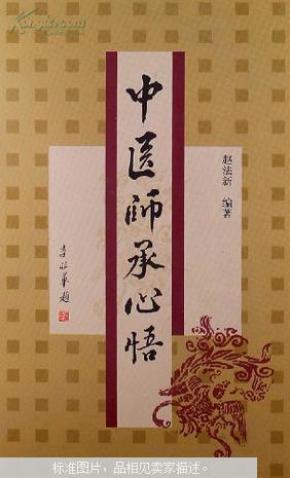 中医師承心悟
赵法新 编著
李振華題
标准图片，品相见卖家描述。